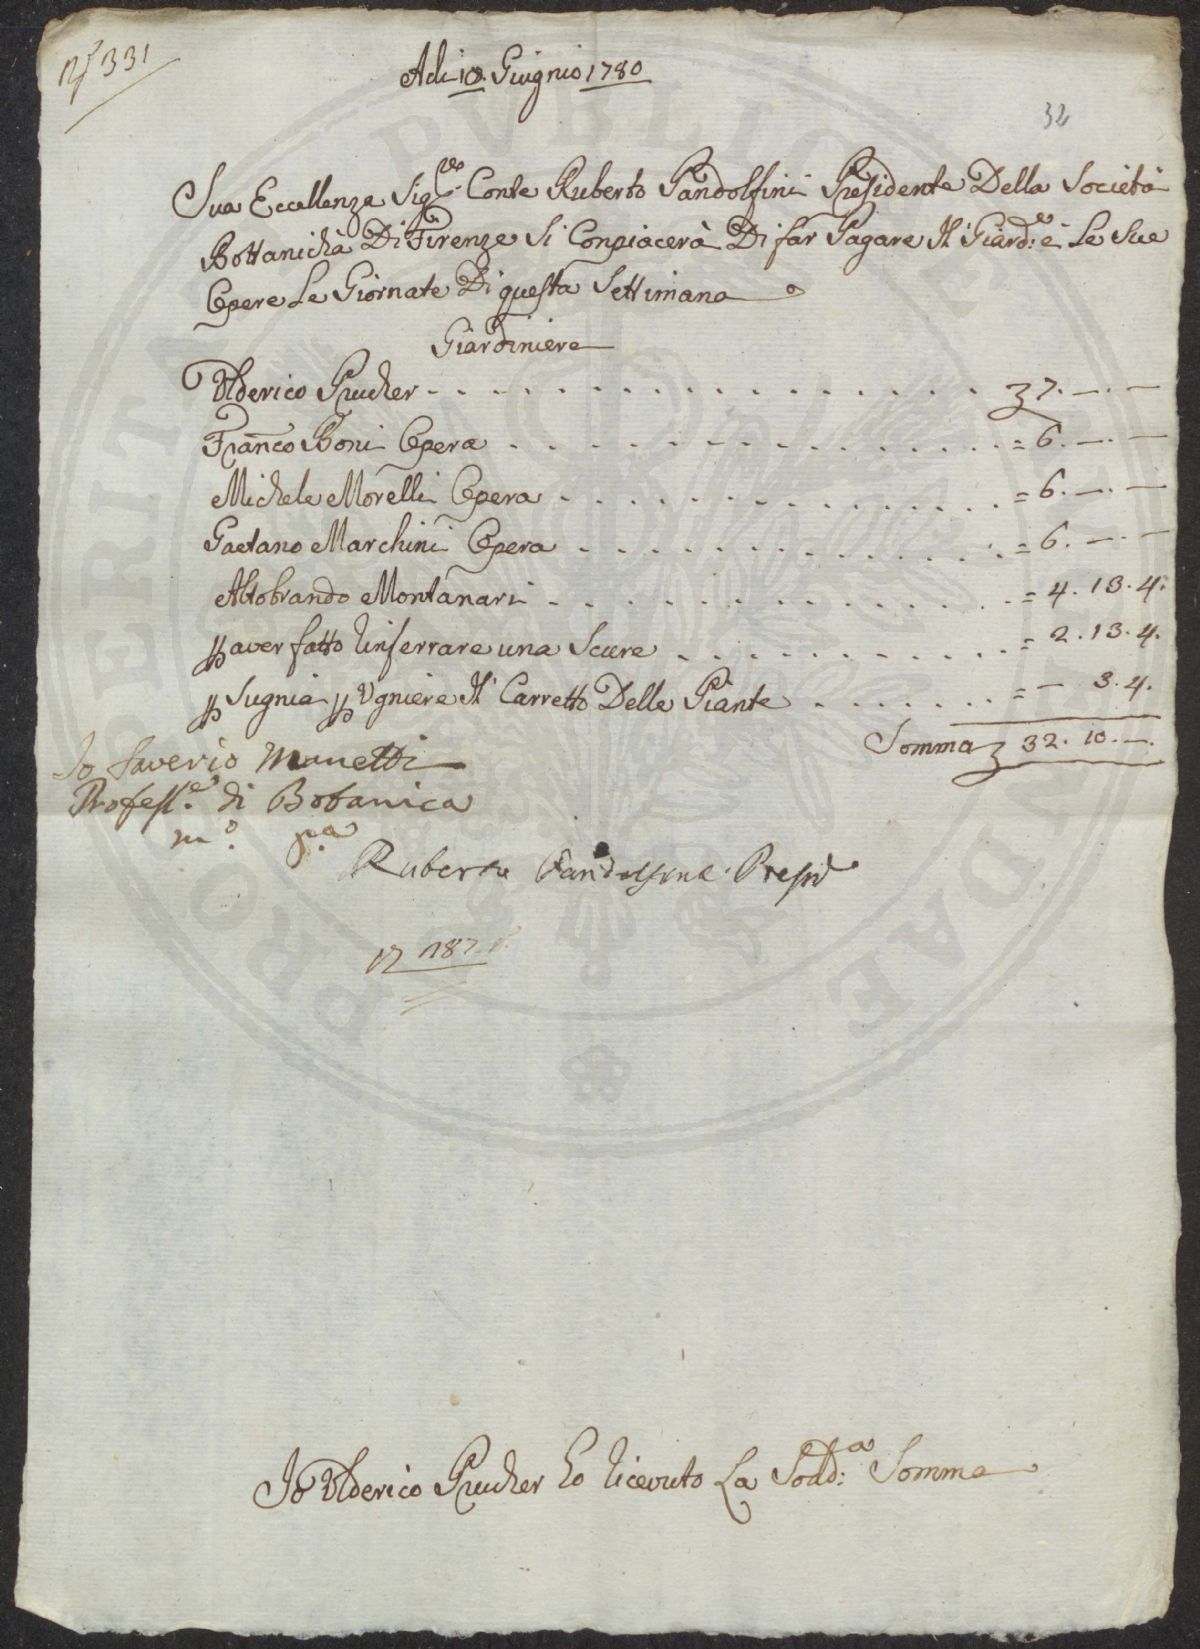 N° 331
Adi 10. Giugnio 1780
32
Sua Eccellenza Sig.re Conte Ruberto Pandolfini Presidente Della Società
Bottanicha Di Firenze Si Conpiacerà Di far Pagare Il Giard:e e Le Sue
Opere Le Giornate Di questa Settimana
Giardiniere
Ulderico Prucher - - - - - - - - - - 7. — . —
Franco Boni Opera - - - - - - - - - - = 6. — . —
Michele Morelli Opera - - - - - - - - - - = 6. — . —
Gaetano Marchini Opera - - - - - - - - - - = 6. — . —
Altobrando Montanari - - - - - - - - - - = 4. 13. 4.
p aver fatto rinferrare una Scure - - - - - - - - = 2. 13. 4.
p Sugnia p Ugniere Il Carretto Delle Piante - - - - - - = — 3. 4.
Somma 32. 10. —.
Io Saverio Manetti
Profess.e di Botanica
m.o p.a
Ruberto Pandolfini Presid
187
Io Ulderico Prucher ho ricevuto La Sodd:a Somma
PROPERITATI PVBLICAE